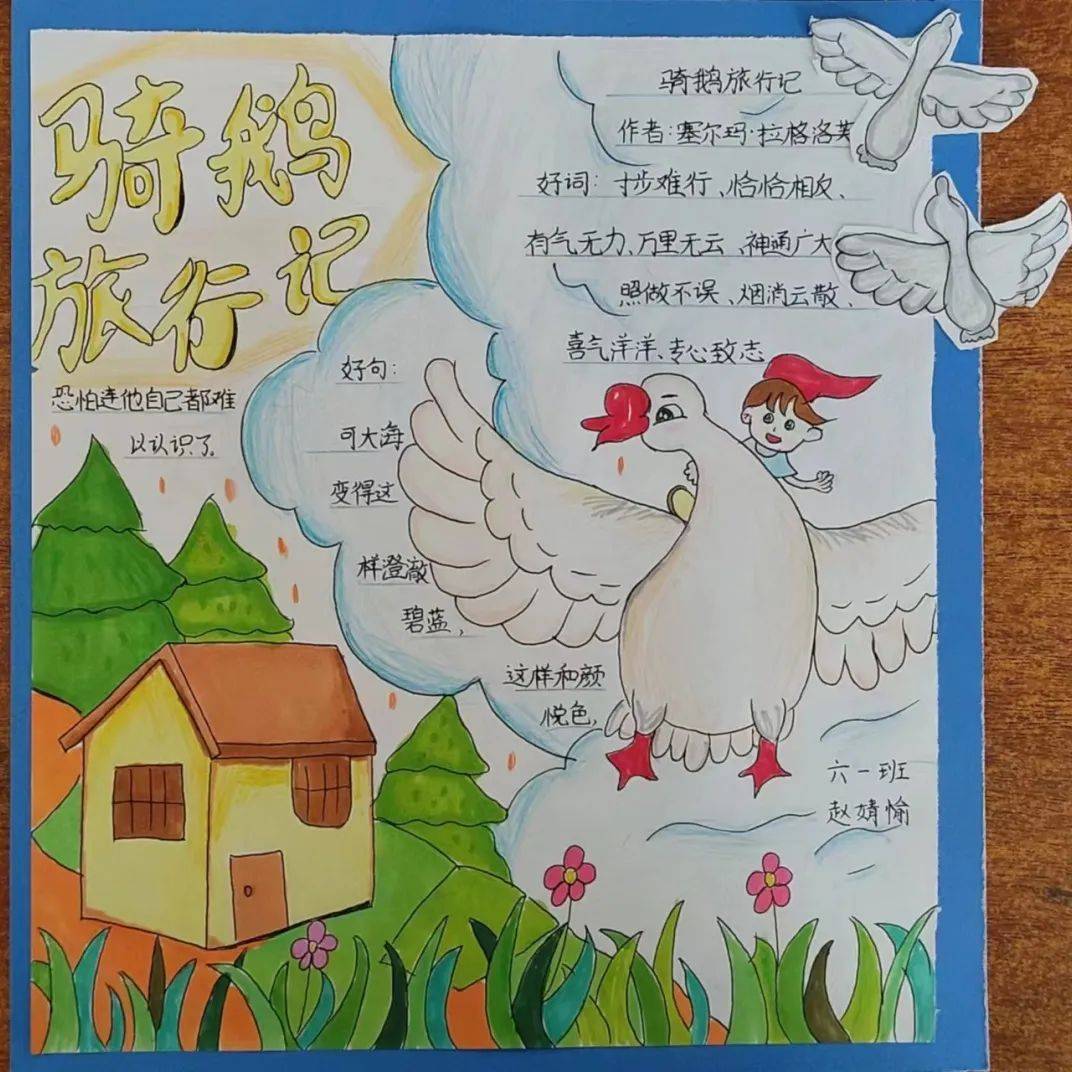 骑鹅
旅行记
骑鹅旅行记
作者：塞尔玛·拉格洛芙
好词：寸步难行、恰恰相反、
有气无力、万里无云、神通广大
照做不误、烟消云散、
喜气洋洋、专心致志
好句：
可大海
变得这
样澄澈
碧蓝，
这样和颜
悦色，
恐怕连他自己都难
以认识了。
六一班
赵婧愉